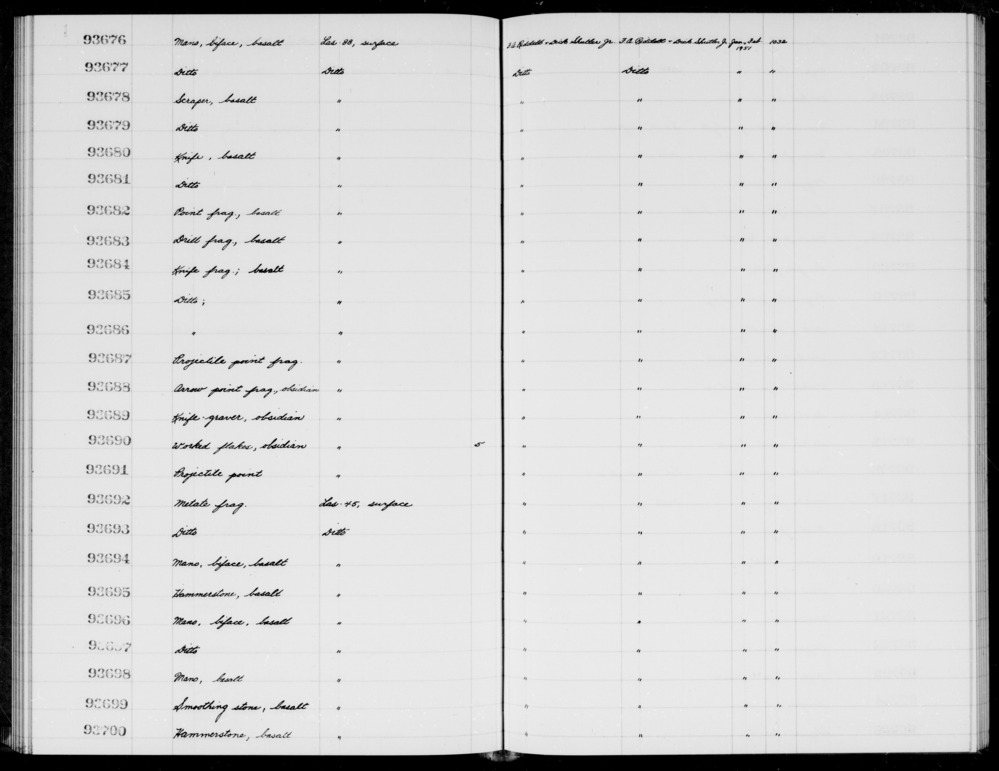 93676 Mano, biface, basalt Las 88, surface F.A. Riddell + Dick Shutler Jr. F.A. Riddell + Dick Shutler Jr. Jan, Feb 1032
1951
93677 Ditto Ditto Ditto Ditto " "
93678 Scraper, basalt " " " " "
93679 Ditto " " " " "
93680 Knife, basalt " " " " "
93681 Ditto " " " " "
93682 Point frag., basalt " " " " "
93683 Drill frag., basalt " " " " "
93684 Knife frag.; basalt " " " " "
93685 Ditto; " " " " "
93686 " " " " " "
93687 Projectile point frag. " " " " "
93688 Arrow point frag., obsidian " " " " "
93689 Knife-graver, obsidian " " " " "
93690 Worked flakes, obsidian " 5 " " " "
93691 Projectile point " " " " "
93692 Metate frag. Las-45, surface " " " "
93693 Ditto Ditto " " " "
93694 Mano, biface, basalt " " " " "
93695 Hammerstone, basalt " " " " "
93696 Mano, biface, basalt " " " " "
93697 Ditto " " " " "
93698 Mano, basalt " " " " "
93699 Smoothing stone, basalt " " " " "
93700 Hammerstone, basalt " " " " "